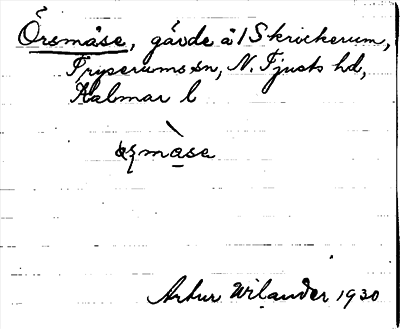 Örsmåse, gärde å 1 Skrickerum,
Tryserums sn, N. Tjusts hd,
Kalmar l
Artur Wilander 1930